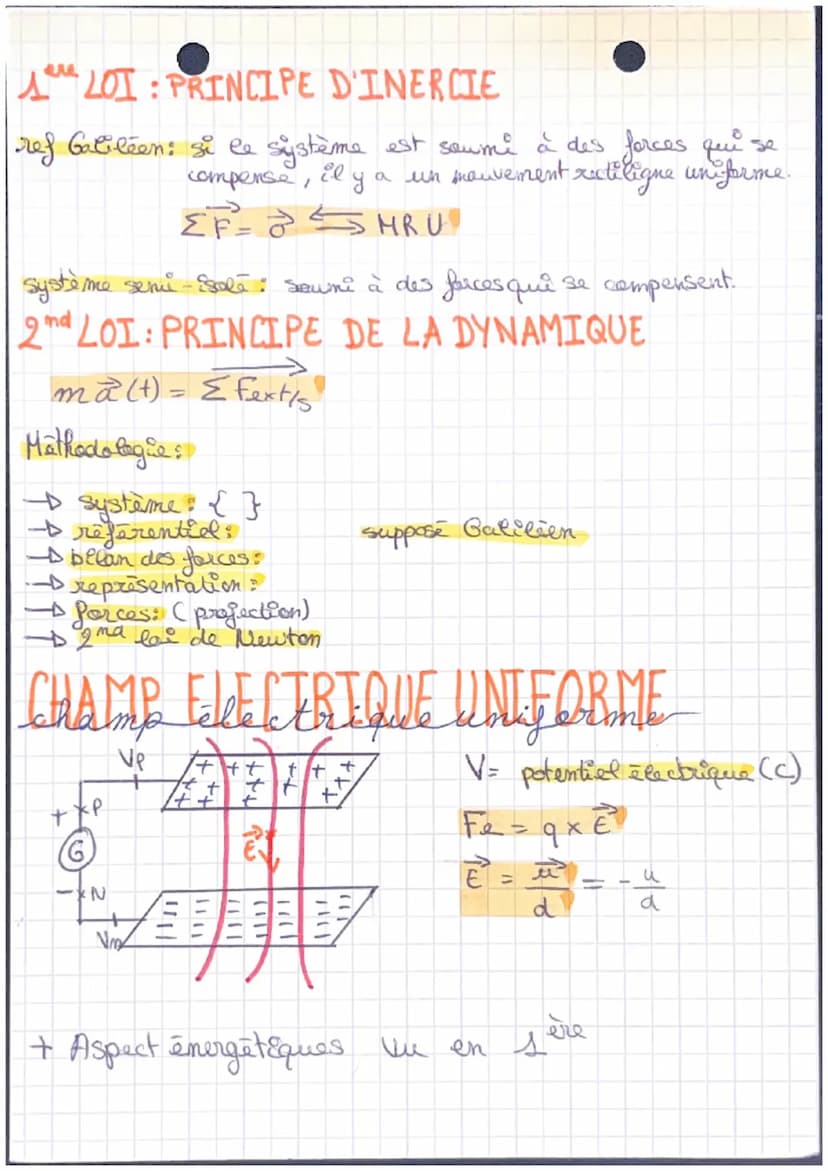 1ère LOI : PRINCIPE D'INERCIE
ref Galiléen: si le système est soumi à des forces qui se
compense, il y a un mouvement rectiligne uniforme.
Σ F⃗ = 0⃗ ⇆ MRU
système semi-isolé : soumi à des forces qui se compensent.
2nd LOI : PRINCIPE DE LA DYNAMIQUE
m a⃗ (t) = Σ Fext/s
Méthodologie :
→ système : { }
→ référentiel : supposé Galiléen
→ bilan des forces :
→ représentation :
→ forces : (projection)
→ 2nd loi de Newton
CHAMP ELECTRIQUE UNIFORME
champ électrique uniforme
Vp
+ + + + + + + + + + + + + +
V = potentiel électrique (C)
+ P
Fe = q x E⃗
G
E⃗
E⃗ = u⃗/d = - u/d
- N
Vn
+ Aspect énergétiques vu en 1ère